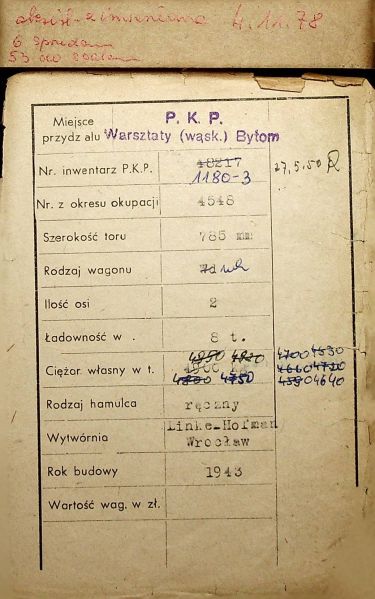 z inwentarza 4.11.78
6
53 do
P. K. P.
Miejsce
przydziału Warsztaty (wąsk.) Bytom
Nr. inwentarz P.K.P. 48217 27.5.50
1180-3
Nr. z okresu okupacji 4548
Szerokość toru 785 mm
Rodzaj wagonu
Ilość osi 2
Ładowność w . 8 t.
4850 4820 4700 4530
Ciężar własny w t. 4660 4720
4800 4750 4590 4640
Rodzaj hamulca ręczny
Linke-Hofman
Wytwórnia Wrocław
Rok budowy 1943
Wartość wag. w zł.